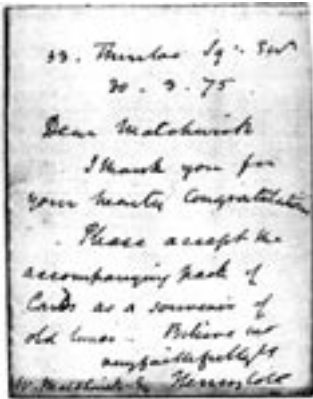 33. Thurloe Sqre. S.W.
30. 3. 75
Dear Matchwick
I thank you for
your hearty Congratulation
. Please accept the
accompanying pack of
Cards as a souvenir of
old times. Believe me
very faithfully yr
W. Matchwick Esq Henry Cole